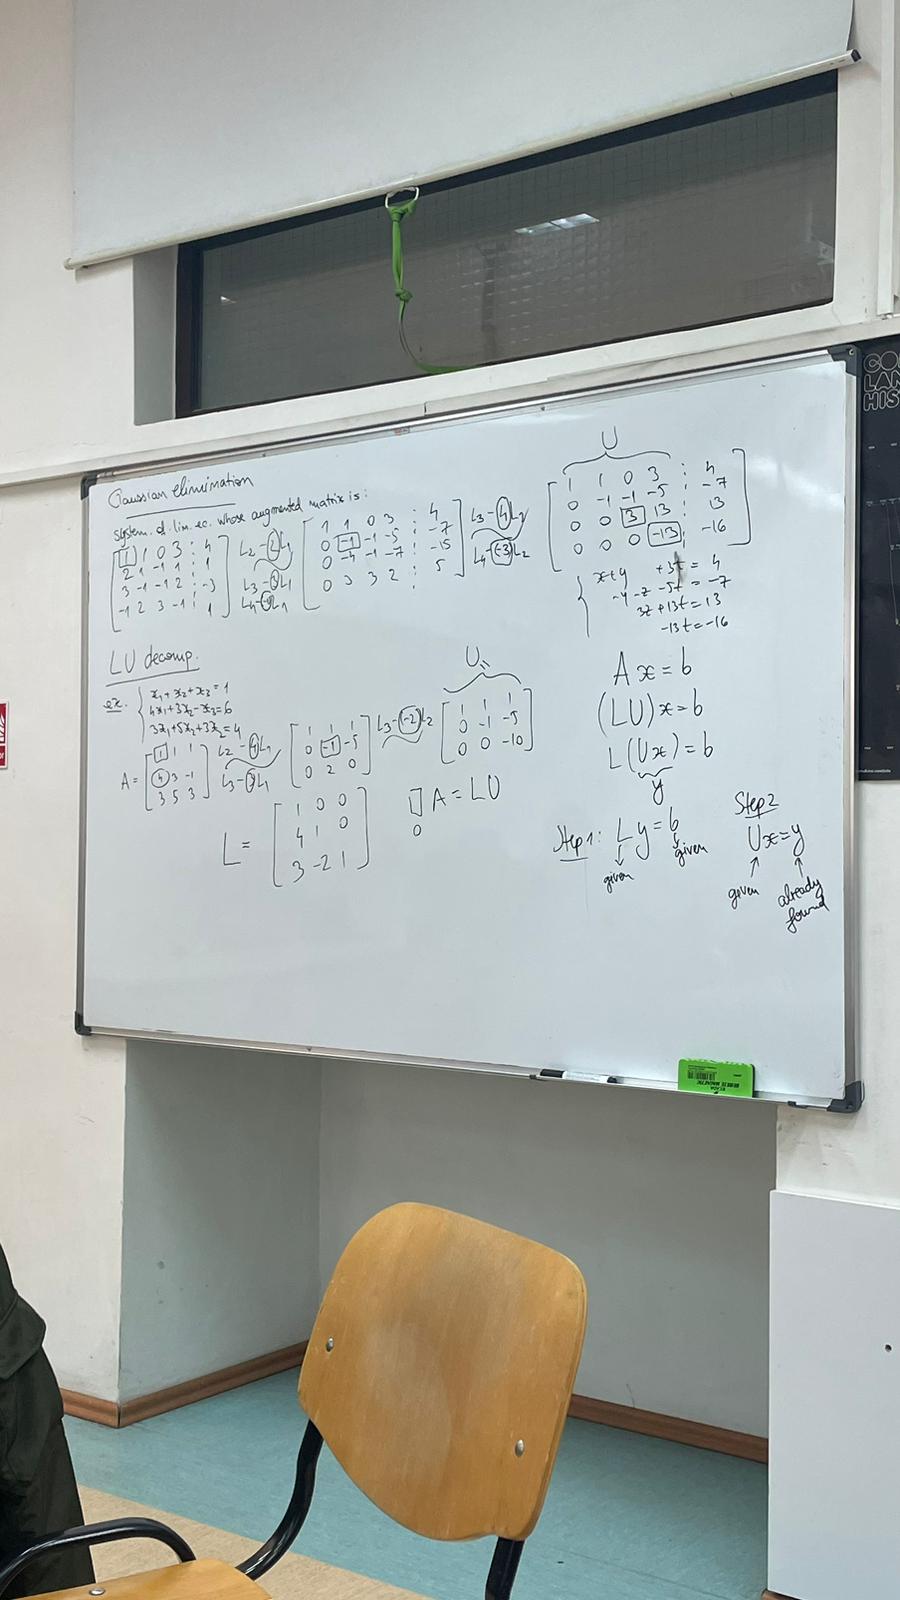 Gaussian elimination
System of lin. ec. whose augmented matrix is:
[1 1 0 3 : 4
2 1 -1 1 : 1
3 -1 -1 2 : -3
-1 2 3 -1 : 1]
L2 - 2L1
L3 - 3L1
L4 - (-1)L1
[1 1 0 3 : 4
0 -1 -1 -5 : -7
0 -4 -1 -7 : -15
0 3 3 2 : 5]
L3 - 4L2
L4 - (-3)L2
U
[1 1 0 3 : 4
0 -1 -1 -5 : -7
0 0 3 13 : 13
0 0 0 -13 : -16]
x+y +3t = 4
-y-z-5t = -7
3z+13t = 13
-13t = -16
LU decomp.
ex. { x1 + x2 + x3 = 1
4x1 + 3x2 - x3 = 6
3x1 + 5x2 + 3x3 = 4
A = [1 1 1
4 3 -1
3 5 3]
L2 - 4L1
L3 - 3L1
[1 1 1
0 -1 -5
0 2 0]
L3 - (-2)L2
U =
[1 1 1
0 -1 -5
0 0 -10]
L = [1 0 0
4 1 0
3 -2 1]
A = LU
Ax = b
(LU)x = b
L(Ux) = b
y
Step 1: Ly = b
given given
Step 2
Ux = y
given already
found
LAN
HIS